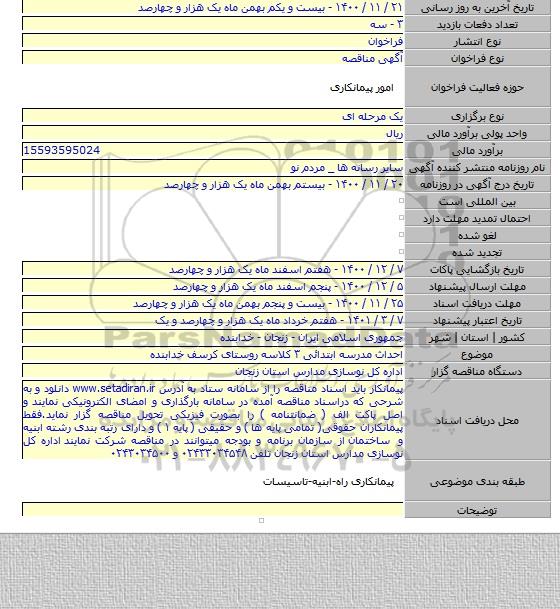 تاریخ آخرین به روز رسانی ۲۱ / ۱۱ / ۱۴۰۰ - بیست و یکم بهمن ماه یک هزار و چهارصد
تعداد دفعات بازدید ۳ - سه
نوع انتشار فراخوان
نوع فراخوان آگهی مناقصه
حوزه فعالیت فراخوان امور پیمانکاری
نوع برگزاری یک مرحله ای
واحد پولی برآورد مالی ریال
برآورد مالی 15593595024
نام روزنامه منتشر کننده آگهی سایر رسانه ها _ مردم نو
تاریخ درج آگهی در روزنامه ۲۰ / ۱۱ / ۱۴۰۰ - بیستم بهمن ماه یک هزار و چهارصد
بین المللی است
احتمال تمدید مهلت دارد
لغو شده
تجدید شده
تاریخ بازگشایی پاکات ۷ / ۱۲ / ۱۴۰۰ - هفتم اسفند ماه یک هزار و چهارصد
مهلت ارسال پیشنهاد ۵ / ۱۲ / ۱۴۰۰ - پنجم اسفند ماه یک هزار و چهارصد
مهلت دریافت اسناد ۲۵ / ۱۱ / ۱۴۰۰ - بیست و پنجم بهمن ماه یک هزار و چهارصد
تاریخ اعتبار پیشنهاد ۷ / ۳ / ۱۴۰۱ - هفتم خرداد ماه یک هزار و چهارصد و یک
کشور | استان | شهر جمهوری اسلامی ایران - زنجان - خدابنده
موضوع احداث مدرسه ابتدائی ۳ کلاسه روستای کرسف خدابنده
دستگاه مناقصه گزار اداره کل نوسازی مدارس استان زنجان
محل دریافت اسناد پیمانکار باید اسناد مناقصه را از سامانه ستاد به آدرس www.setadiran.ir دانلود و به
شرحی که دراسناد مناقصه آمده در سامانه بارگذاری و امضای الکترونیکی نمایند و
اصل پاکت الف ( ضمانتنامه ) را بصورت فیزیکی تحویل مناقصه گزار نماید.فقط
پیمانکاران حقوقی( تمامی پایه ها ) و حقیقی ( پایه ۱ ) و دارای رتبه بندی رشته ابنیه
و ساختمان از سازمان برنامه و بودجه میتوانند در مناقصه شرکت نمایند اداره کل
نوسازی مدارس استان زنجان تلفن ۰۲۴۳۳۰۳۴۵۴۸ و ۰۲۴۳۰۳۴۵۰۰
طبقه بندی موضوعی پیمانکاری راه-ابنیه-تاسیسات
توضیحات
ParsNamadData